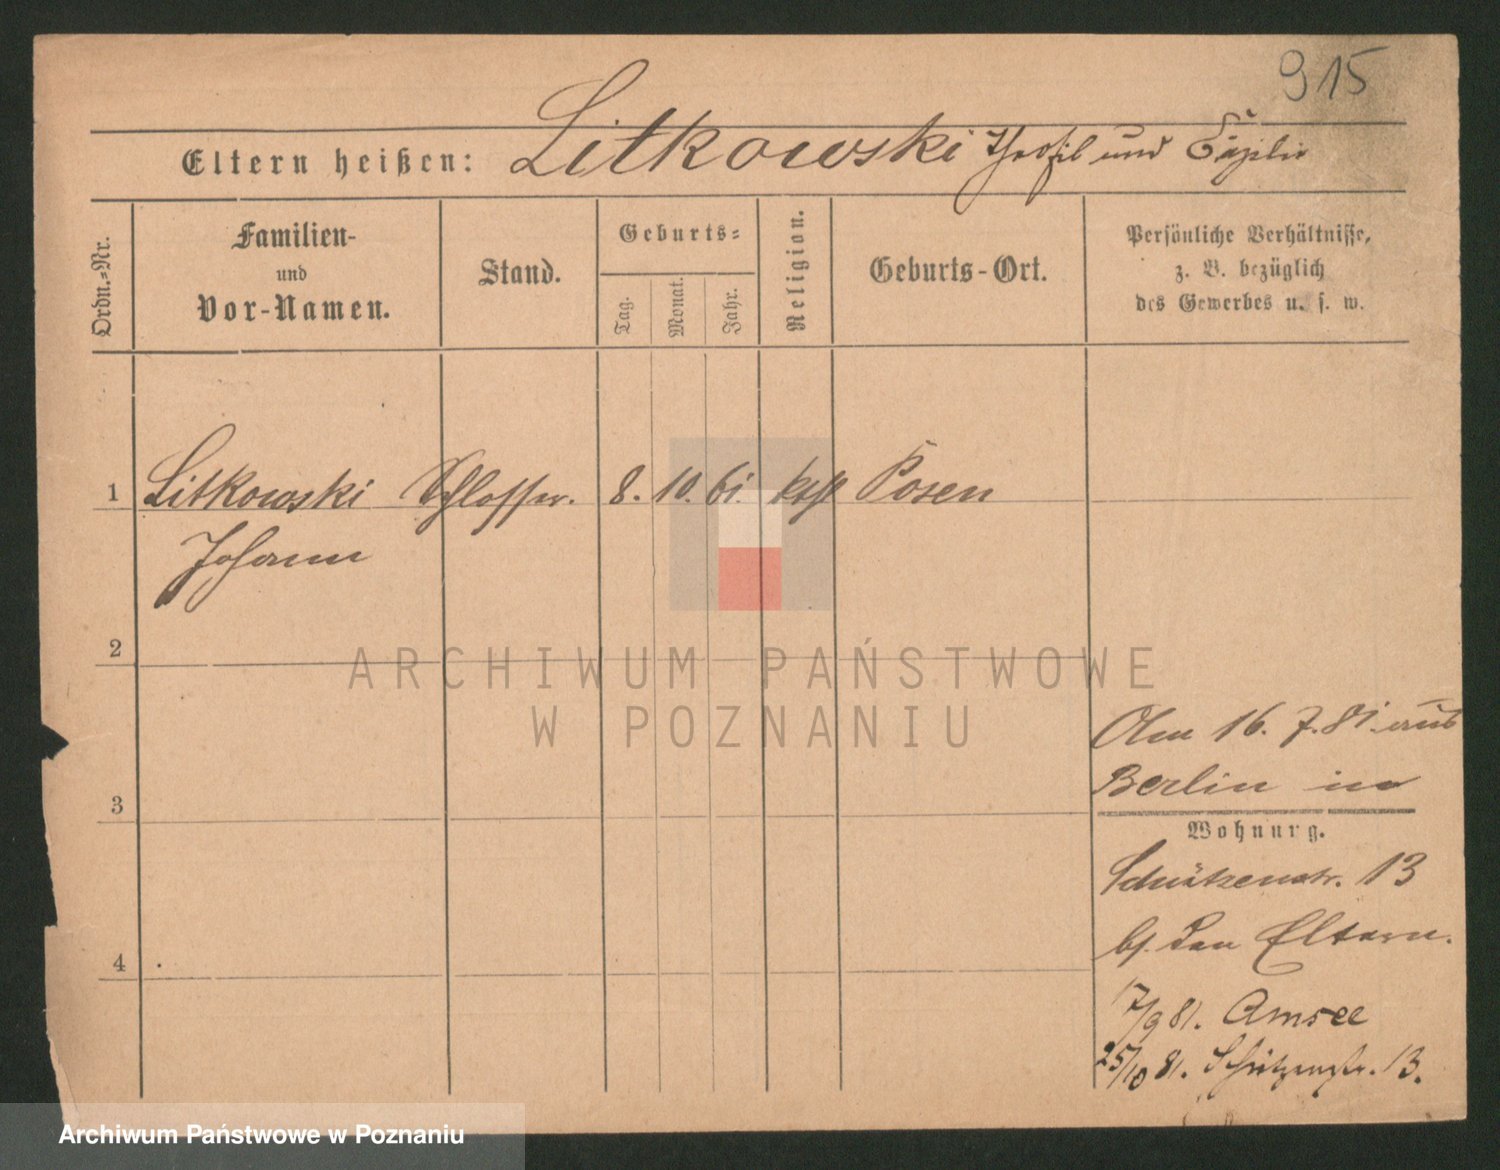 915
Eltern heißen: Litkowski Theofil und Cäzilie
Ordn.-Nr.
Familien-
und
Vor-Namen.
Stand.
Geburts-
Tag.
Monat.
Jahr.
Religion.
Geburts-Ort.
Persönliche Verhältnisse,
z. B. bezüglich
des Gewerbes u. s. w.
1 Litkowski Schlosser. 8. 10. 61. kath Posen
Johann
2
ARCHIWUM PAŃSTWOWE
W POZNANIU
Am 16. 7. 81. aus
3 Berlin in
Wohnung.
Schützenstr. 13
b/. den Eltern.
4
17/9 81. Amsee
25/10 81. Schützenstr. 13.
Archiwum Państwowe w Poznaniu